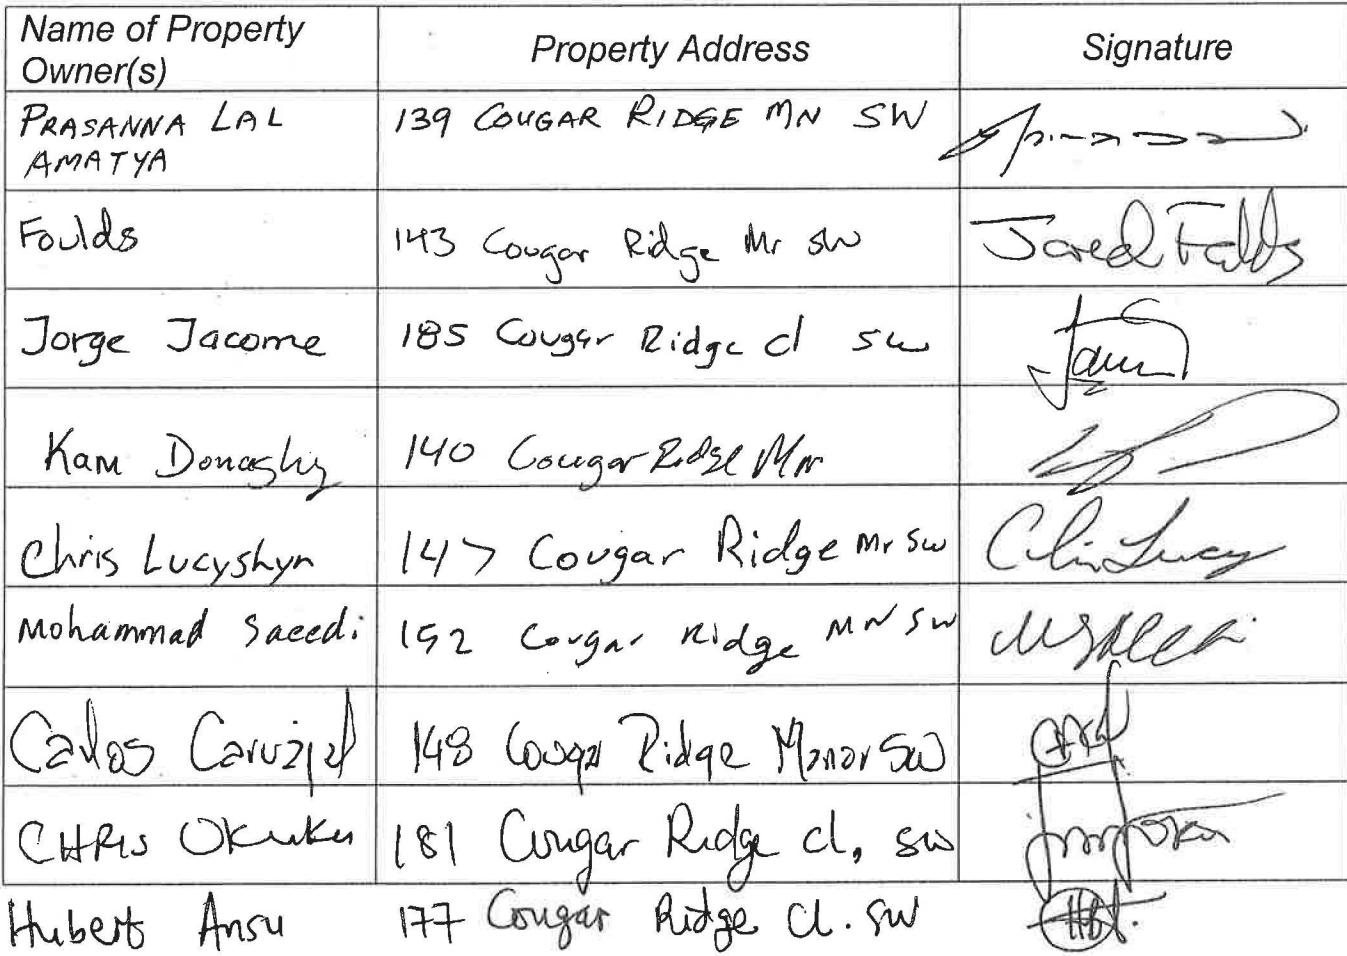 Name of Property Owner(s) Property Address Signature
PRASANNA LAL AMATYA 139 COUGAR RIDGE MN SW
Foulds 143 Cougar Ridge Mr SW Jared Foulds
Jorge Jacome 185 Cougar Ridge cl sw
Kam Donaghy 140 Cougar Ridge Mnr
Chris Lucyshyn 147 Cougar Ridge Mr SW
Mohammad Saeedi 152 Cougar Ridge MN SW
Carlos 148 Cougar Ridge Manor SW
CHRIS Okuku 181 Cougar Ridge cl, sw
Hubert Ansu 177 Cougar Ridge Cl. SW